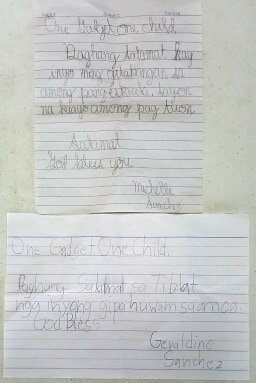 One Gadget one child,
Daghang Salamat kay
inyo mag gitabangan sa
among pang eskwela. Tulyon
na kaayo among pag tuon.
Salamat
God bless you
Michelle
Sanchez
One Gadget One Child.
Daghang Salamat sa Tablet
nga inyong gipahuwam saamoa.
God Bless
Geraldine
Sanchez